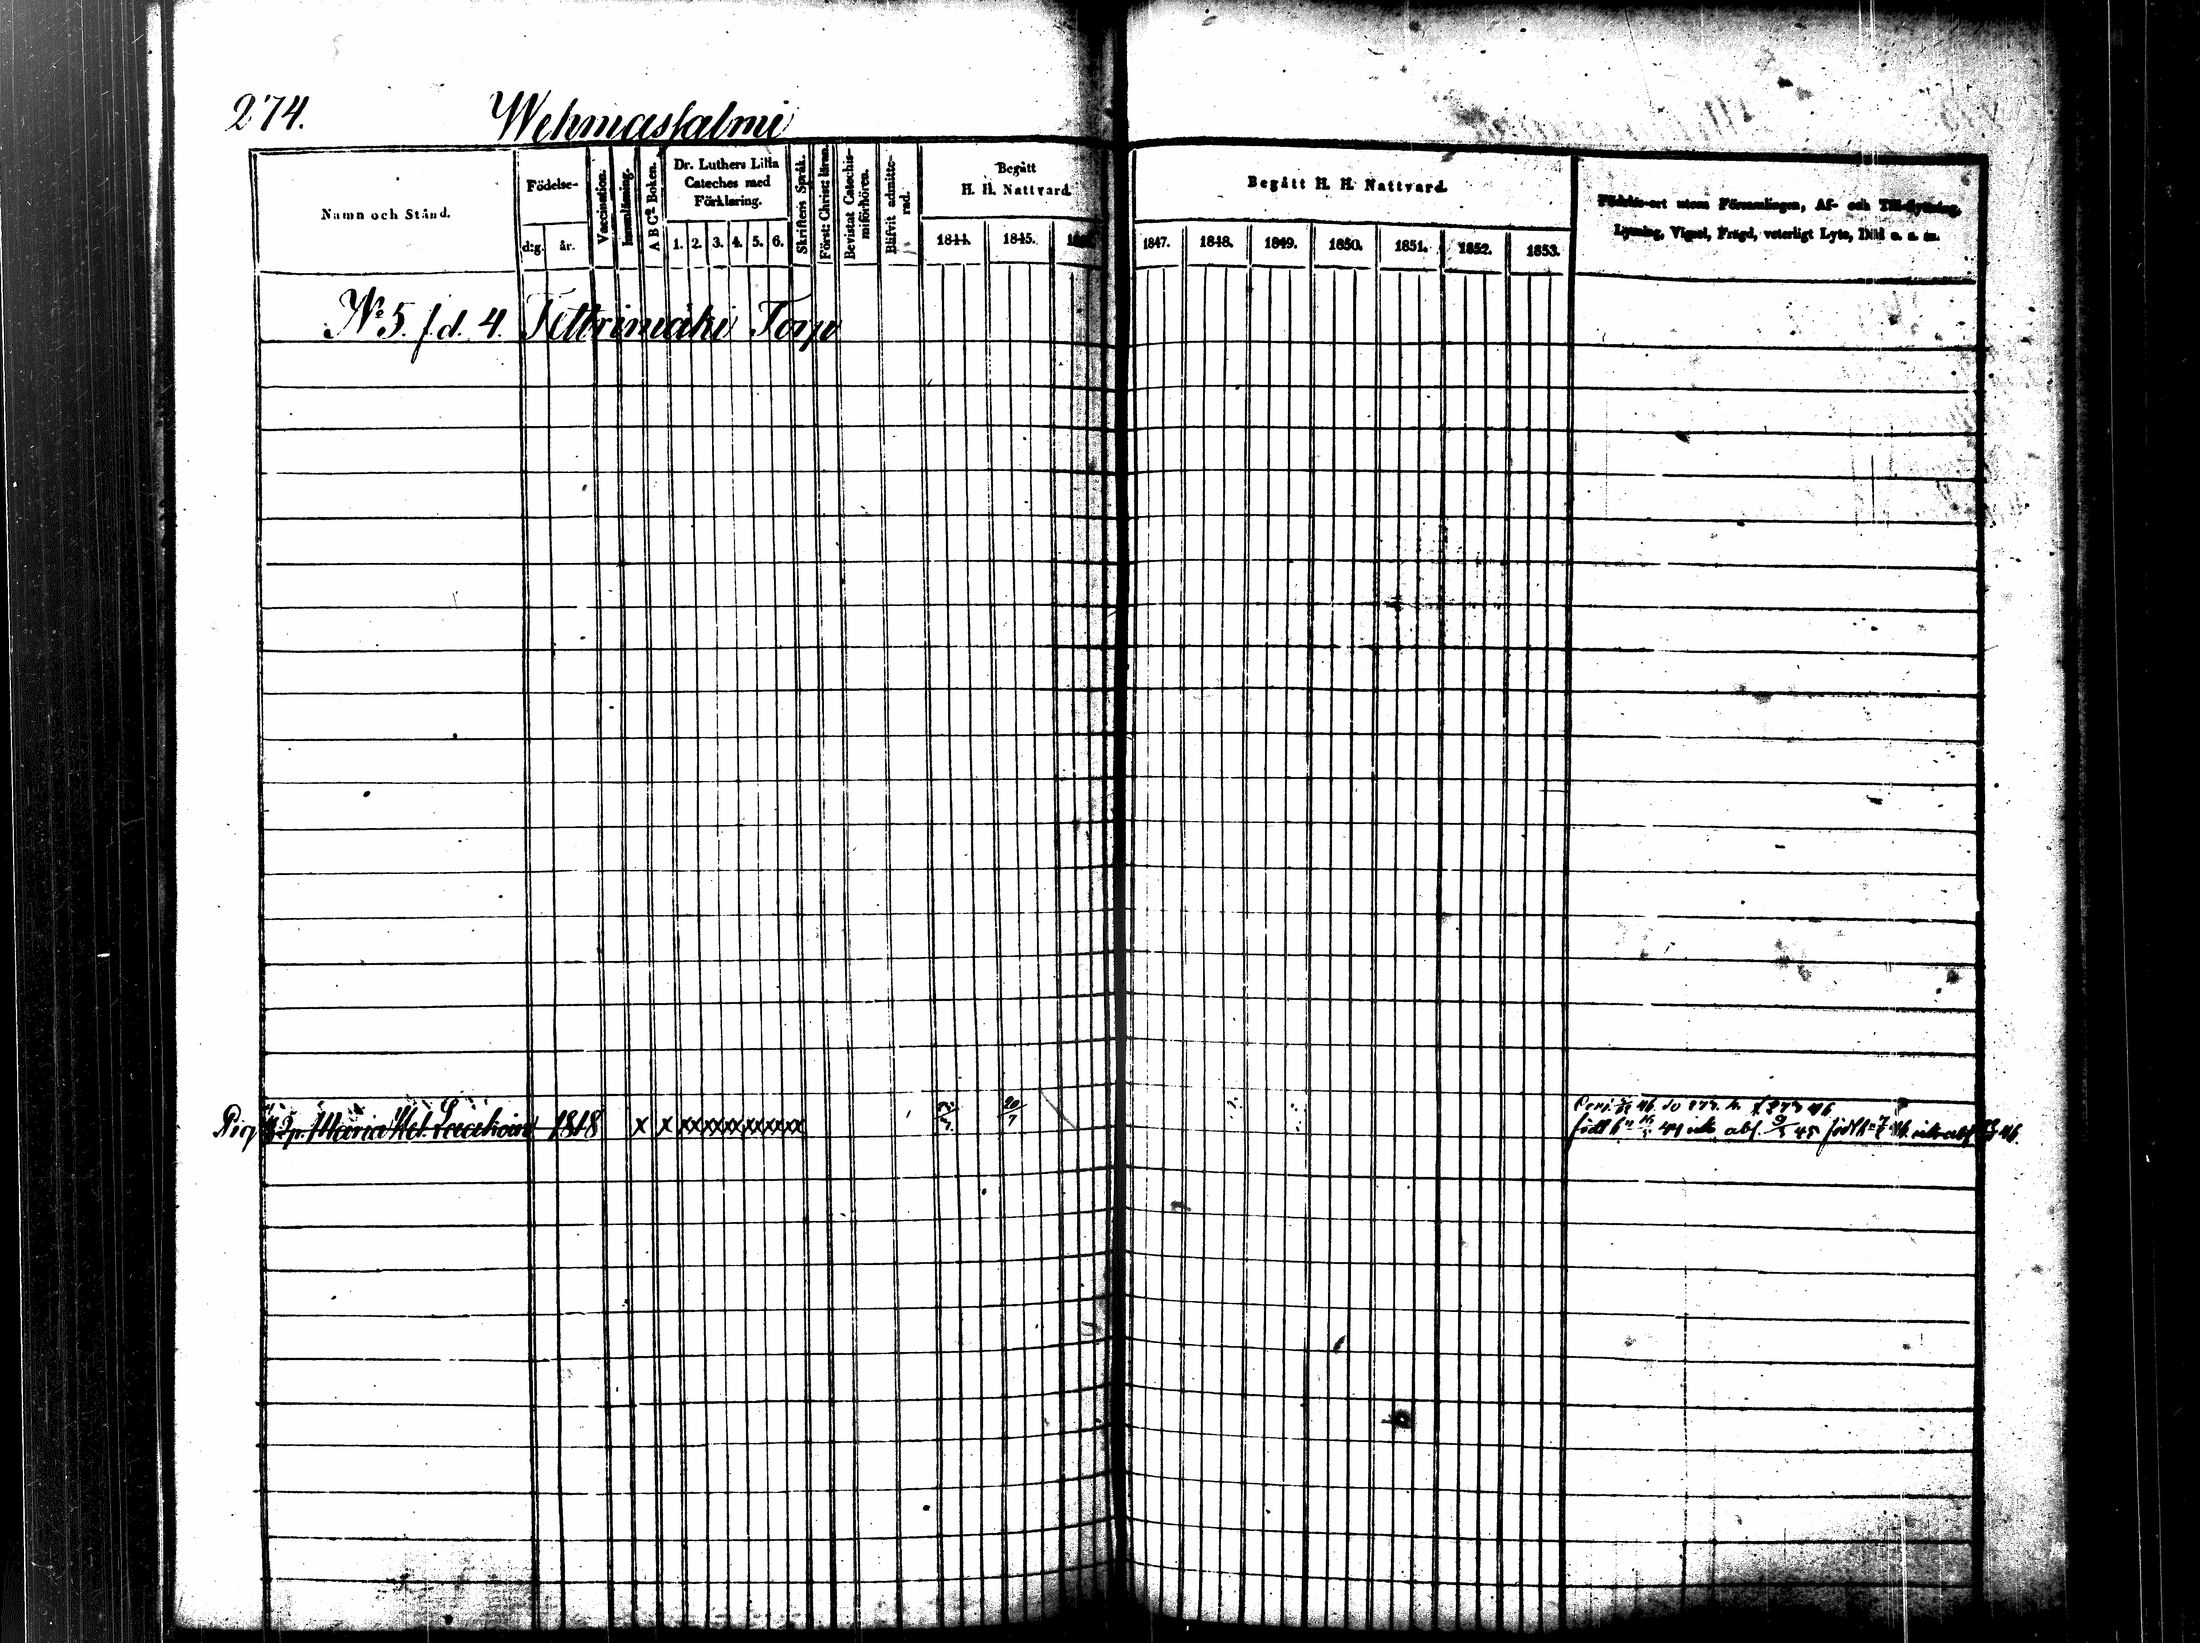 274. Wehmassalmi
Namn och Stånd.
Födelse-
d:g. år.
Vaccination.
Innanläsning.
A B C Boken.
Dr. Luthers Lilla
Cateches med
Förklaring.
1. 2. 3. 4. 5. 6.
Skriftens Språk.
Först: Christ: läran.
Bevistat Catechis-
miförhören.
Blifvit admitte-
rad.
Begått
H. H. Nattvard.
1844. 1845.
Begått H. H. Nattvard.
1847. 1848. 1849. 1850. 1851. 1852. 1853.
Födelse-ort utom Församlingen, Af- och Till-flyttning,
Lysning, Vigsel, Frägd, veterligt Lyte, Död o. a. m.
No 5. f.d. 4. Tettrimäki Torp
Pig Maria 1818 x x xxxxxxxxxx 20/7